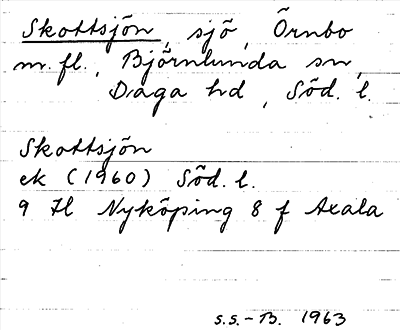 Skottsjön, sjö, Örnbo
m. fl., Björnlunda sn,
Daga hd, Söd. l.
Skottsjön
ek (1960) Söd. l.
9 Il Nyköping 8 f Axala
S.S.-B. 1963